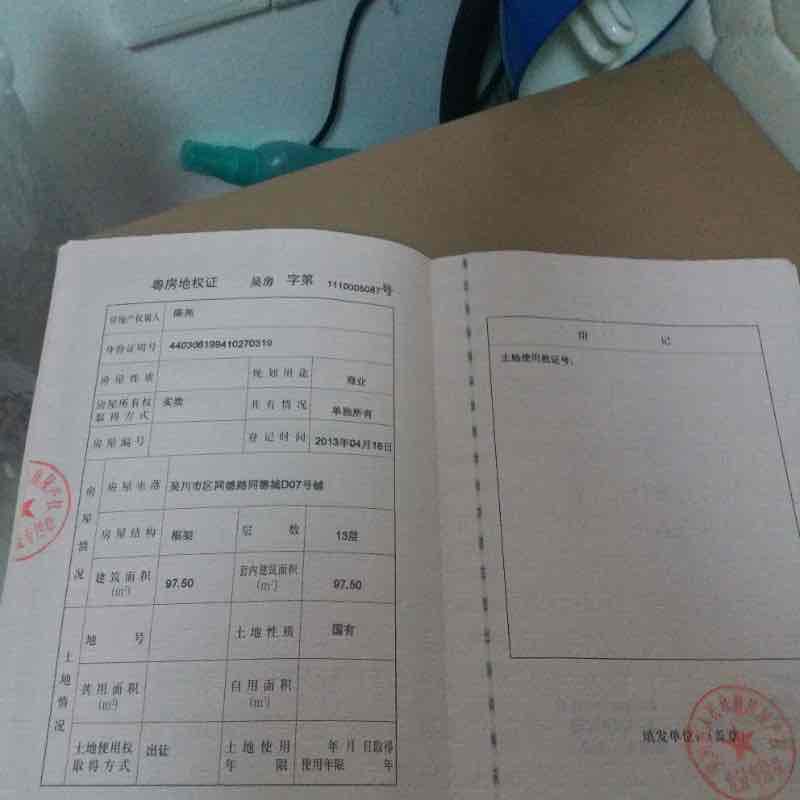 粤房地权证 吴房 字第 1110005087号
房地产权属人 陈亮
身份证明号 440306199410270319
房屋性质 规划用途 商业
房屋所有权取得方式 买卖 共有情况 单独所有
房屋编号 登记时间 2013年04月16日
房屋情况
房屋坐落 吴川市区同德路同德城D07号铺
房屋结构 框架 层数 13层
建筑面积(m²) 97.50 套内建筑面积(m²) 97.50
土地情况
地号 土地性质 国有
共用面积(m²) 自用面积(m²)
土地使用权取得方式 出让 土地使用年限 年 月 日取得 使用年限 年
附 记
土地使用权证号:
填发单位:(盖章)